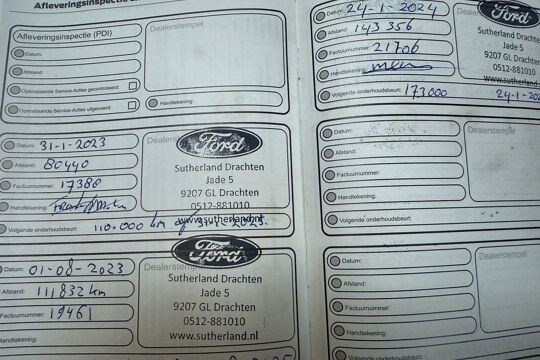 Afleveringsinspectie
Afleveringsinspectie (PDI)
Dealerstempel
Datum:
Afstand:
Openstaande Service-Acties gecontroleerd:
Openstaande Service-Acties uitgevoerd:
Handtekening:
Datum: 31-1-2023
Afstand: 80440
Factuurnummer: 17386
Handtekening:
110.000 km
Dealerst
Ford
Sutherland Drachten
Jade 5
9207 GL Drachten
0512-881010
www.sutherland.nl
Datum: 01-08-2023
Afstand: 111832 km
Factuurnummer: 19461
Handtekening:
Dealerst
Ford
Sutherland Drachten
Jade 5
9207 GL Drachten
0512-881010
www.sutherland.nl
Datum: 24-1-2024
Afstand: 143356
Factuurnummer: 21706
Handtekening:
Volgende onderhoudsbeurt: 173000 24-1-202
Ford
Sutherland Drachten
Jade 5
9207 GL Drachten
0512-881010
www.sutherland
Datum:
Afstand:
Factuurnummer:
Handtekening:
Volgende onderhoudsbeurt:
Dealerstempel
Datum:
Afstand:
Factuurnummer:
Handtekening:
Dealerstempel